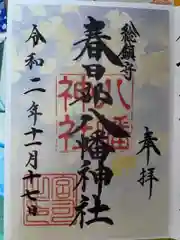 奉拝
総鎮守
春日部八幡神社
八幡
神社
令和二年十一月十七日